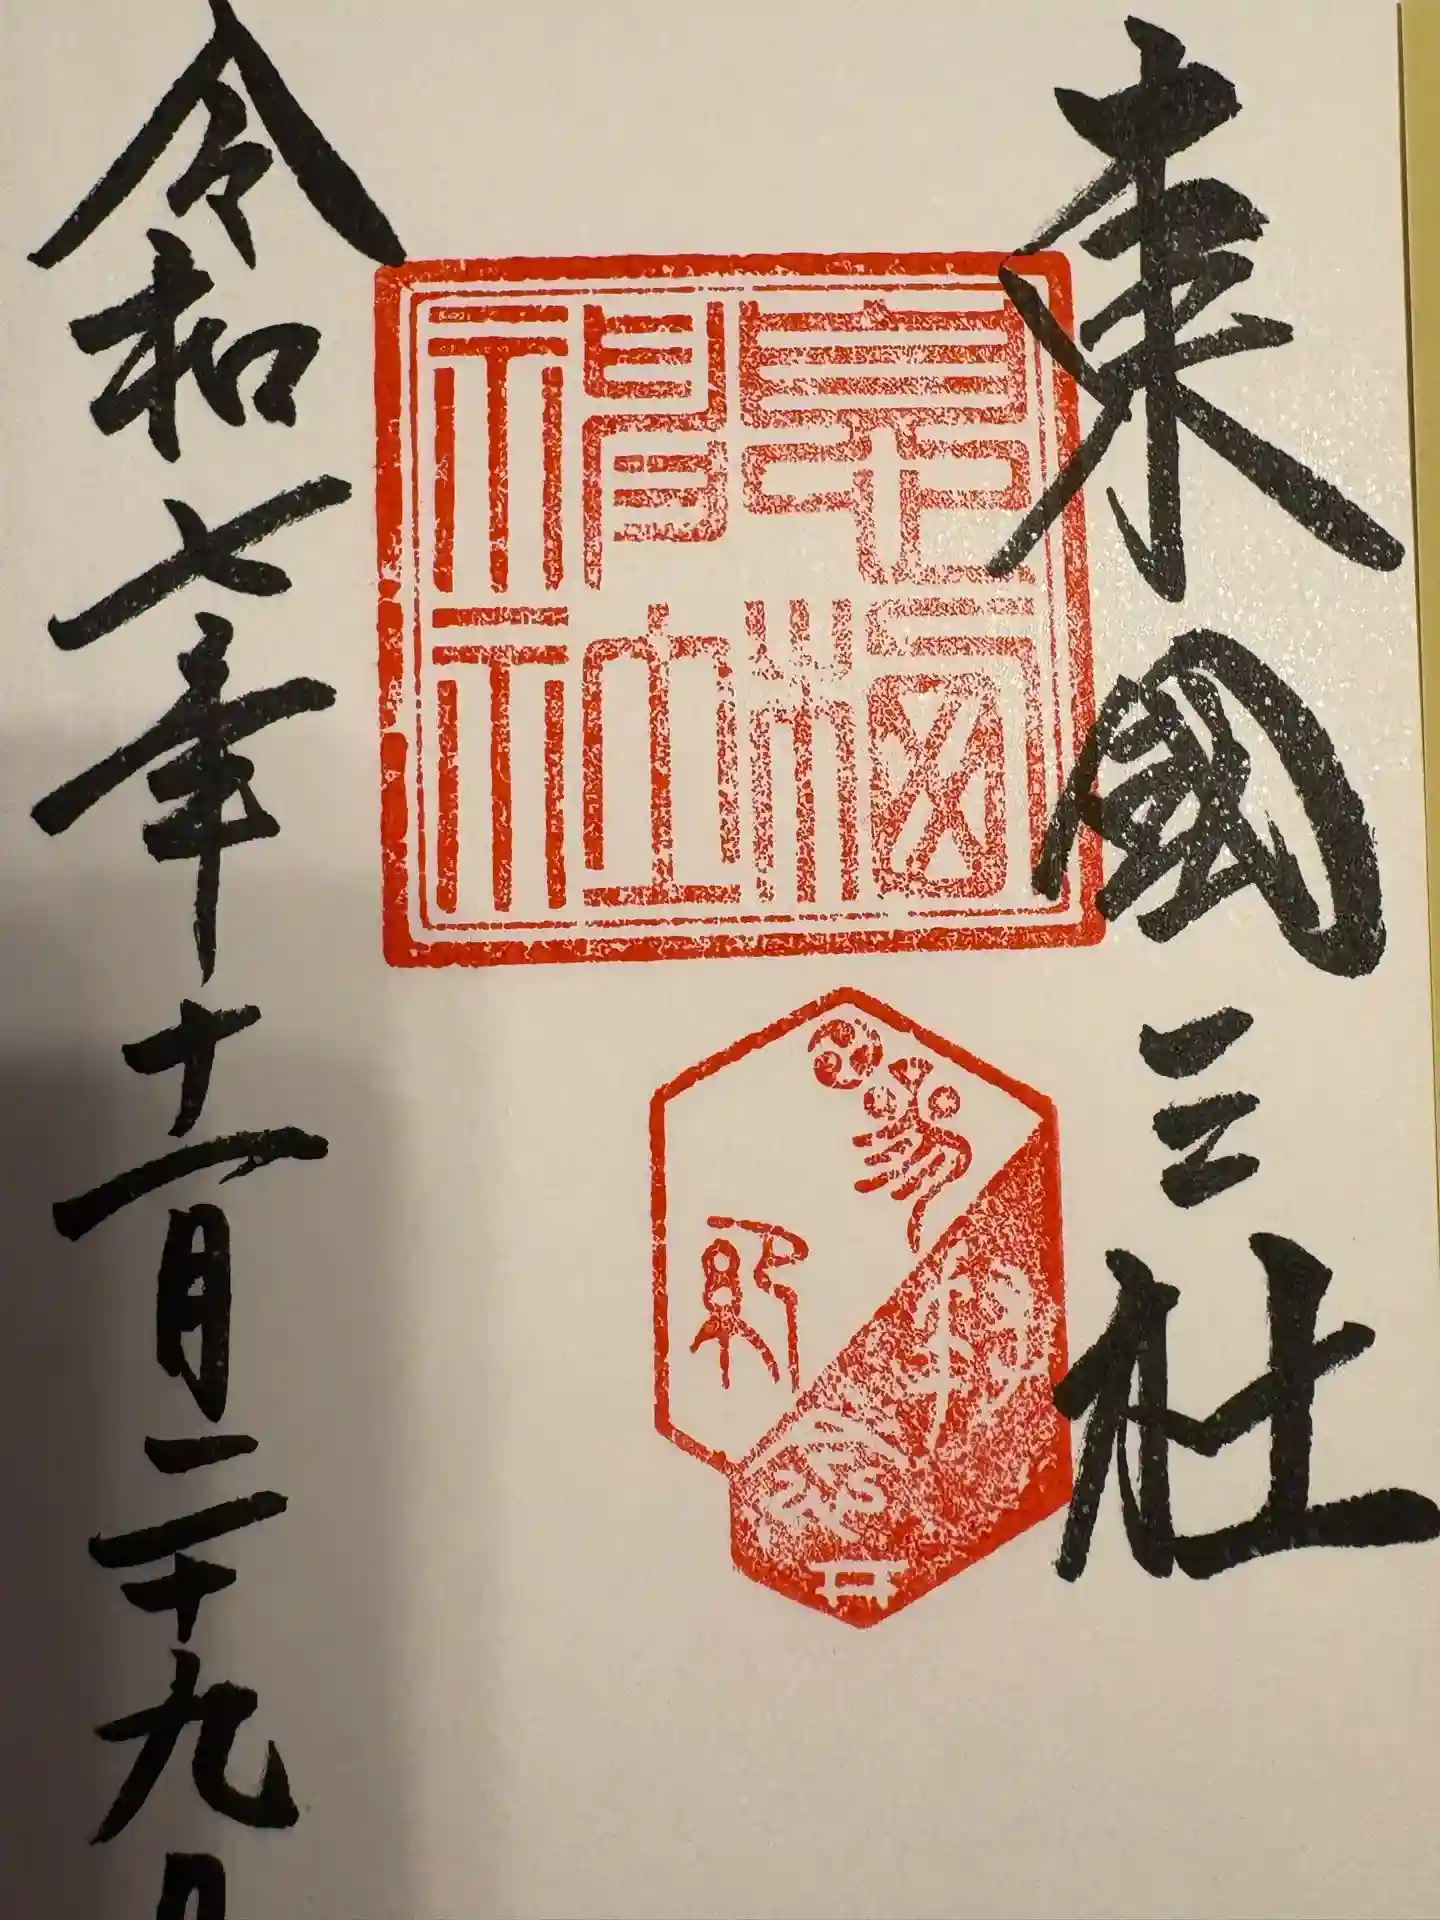 東國三社
息栖
神社
令和七年十一月二十九日